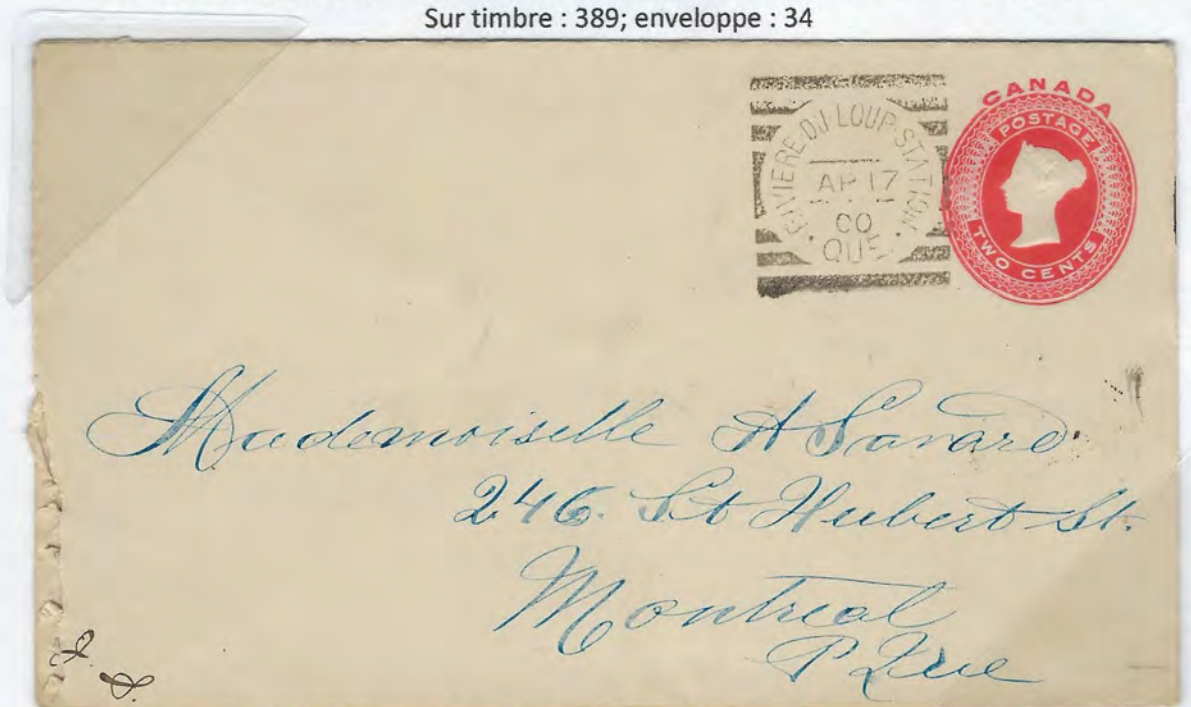 Sur timbre : 389; enveloppe : 34
RIVIERE-DU-LOUP-STATION
AP 17
00
QUE.
CANADA
POSTAGE
TWO CENTS
Mademoiselle A Savard
246. St Hubert St.
Montreal
P Que